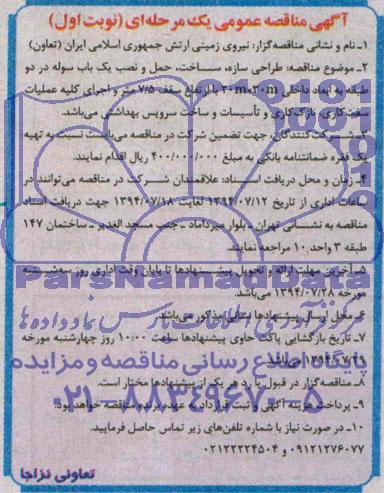 آگهی مناقصه عمومی یک مرحله‌ای (نوبت اول)
۱ـ نام و نشانی مناقصه‌گزار: نیروی زمینی ارتش جمهوری اسلامی ایران (تعاون)
۲ـ موضوع مناقصه: طراحی سازه، ساخت، حمل و نصب یک باب سوله در دو
طبقه به ابعاد داخلی ۲۰m×۳۰m با ارتفاع سقف ۷/۵ متر و اجرای کلیه عملیات
سفت‌کاری، نازک‌کاری و تأسیسات و ساخت سرویس بهداشتی می‌باشد.
۳ـ شرکت‌کنندگان، جهت تضمین شرکت در مناقصه می‌بایست نسبت به تهیه
یک فقره ضمانتنامه بانکی به مبلغ ۴۰۰/۰۰۰/۰۰۰ ریال اقدام نمایند.
۴ـ زمان و محل دریافت اسناد: علاقمندان شرکت در مناقصه می‌توانند در
ساعات اداری از تاریخ ۱۳۹۴/۰۷/۱۲ لغایت ۱۳۹۴/۰۷/۱۸ جهت دریافت اسناد
مناقصه به نشانی تهران ـ بلوار میرداماد ـ جنب مسجد الغدیر ـ ساختمان ۱۴۷
طبقه ۳ واحد ۱۰ مراجعه نمایند.
۵ـ آخرین مهلت ارائه و تحویل پیشنهادها تا پایان وقت اداری روز سه‌شنبه
مورخه ۱۳۹۴/۰۷/۲۸ می‌باشد.
۶ـ محل ارسال پیشنهادها نشانی مذکور می‌باشد.
۷ـ تاریخ بازگشایی پاکت حاوی پیشنهادها ساعت ۱۰:۰۰ روز چهارشنبه مورخه
۱۳۹۴/۰۷/۲۹ می‌باشد.
۸ـ مناقصه‌گزار در قبول یا رد هر یک از پیشنهادها مختار است.
۹ـ پرداخت هزینه آگهی و ثبت قرارداد به عهده برنده مناقصه خواهد بود.
۱۰ـ در صورت نیاز با شماره تلفن‌های زیر تماس حاصل فرمایید.
۰۹۱۲۱۲۷۶۰۷۷ و ۰۲۱۲۲۲۲۴۵۰۴
تعاونی نزاجا
ParsNamadData
مرکز فرآوری اطلاعات پارس نماد داده‌ها
پایگاه اطلاع رسانی مناقصه و مزایده
۰۲۱-۸۸۳۴۹۶۷۰-۵